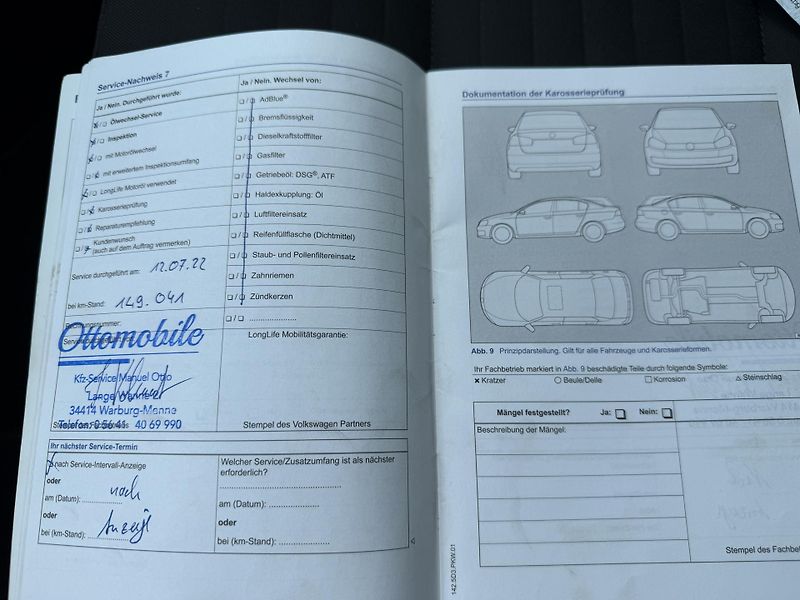 Service-Nachweis 7
Ja / Nein. Durchgeführt wurde:
Ölwechsel-Service
Inspektion
mit Motorölwechsel
mit erweitertem Inspektionsumfang
LongLife Motoröl verwendet
Karosserieprüfung
Reparaturempfehlung
Kundenwunsch
(auch auf dem Auftrag vermerken)
Service durchgeführt am: 12.07.22
bei km-Stand: 149.041
Ottomobile
Kfz-Service Manuel Otto
34414 Warburg-Menne
Telefon 0 56 41 40 69 990
Ja / Nein. Wechsel von:
AdBlue®
Bremsflüssigkeit
Dieselkraftstofffilter
Gasfilter
Getriebeöl: DSG®, ATF
Haldexkupplung: Öl
Luftfiltereinsatz
Reifenfüllflasche (Dichtmittel)
Staub- und Pollenfiltereinsatz
Zahnriemen
Zündkerzen
LongLife Mobilitätsgarantie:
Stempel des Volkswagen Partners
Ihr nächster Service-Termin
nach Service-Intervall-Anzeige
oder
am (Datum): nach
oder
bei (km-Stand): Anzeige
Welcher Service/Zusatzumfang ist als nächster
erforderlich?
am (Datum):
oder
bei (km-Stand):
Dokumentation der Karosserieprüfung
Abb. 9 Prinzipdarstellung. Gilt für alle Fahrzeuge und Karosserieformen.
Ihr Fachbetrieb markiert in Abb. 9 beschädigte Teile durch folgende Symbole:
Kratzer Beule/Delle Korrosion Steinschlag
Mängel festgestellt? Ja: Nein:
Beschreibung der Mängel:
Stempel des Fachbe
142.5D3.PKW.01